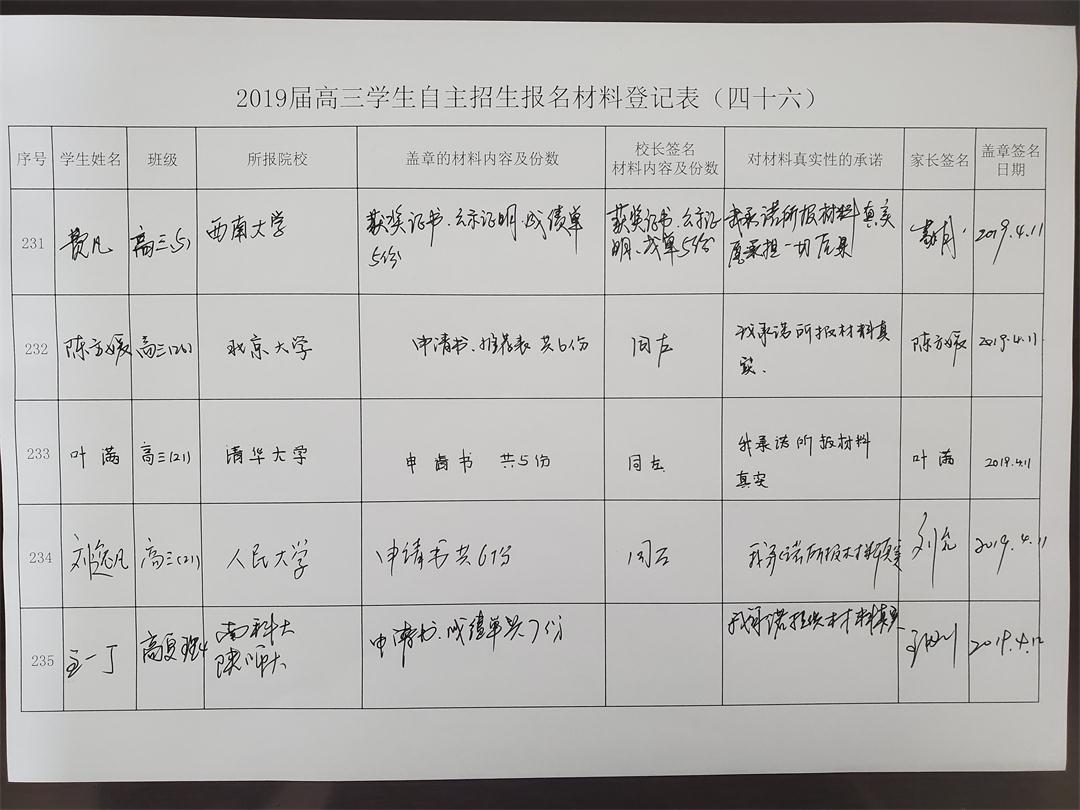 2019届高三学生自主招生报名材料登记表（四十六）
序号 学生姓名 班级 所报院校 盖章的材料内容及份数 校长签名 对材料真实性的承诺 家长签名 盖章签名
材料内容及份数 日期
231 费凡 高三(5) 西南大学 获奖证书、公示证明、成绩单 获奖证书、公示证 我承诺所报材料真实 2019.4.11
5份 明、成单5份 愿承担一切后果
232 陈方媛 高三(26) 北京大学 申请书、推荐表 共6份 同左 我承诺所报材料真 陈方媛 2019.4.11
实.
233 叶满 高三(21) 清华大学 申请书 共5份 同左 我承诺所报材料 叶满 2019.4.11
真实
234 刘逸凡 高三(21) 人民大学 申请书共6份 同左 我承诺所报材料真实 2019.4.11
235 王一丁 高复班4 南科大 申请书、成绩单共7份 我承诺提供材料真实 2019.4.12
陕师大